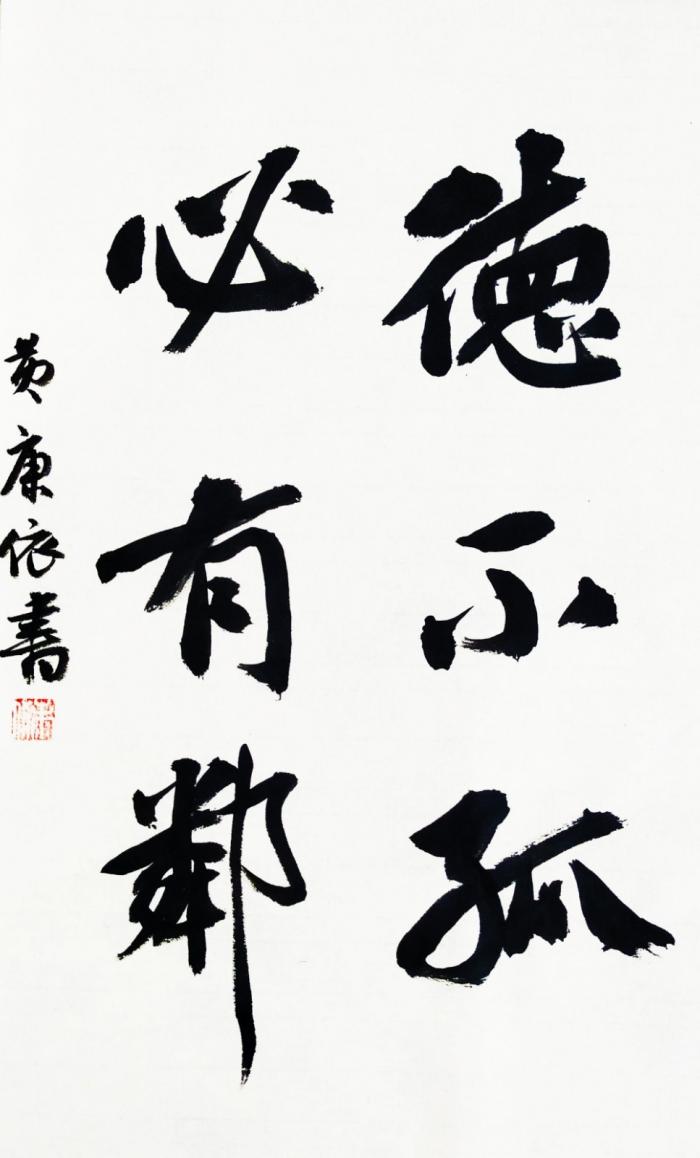 德不孤
必有鄰
黄康依書